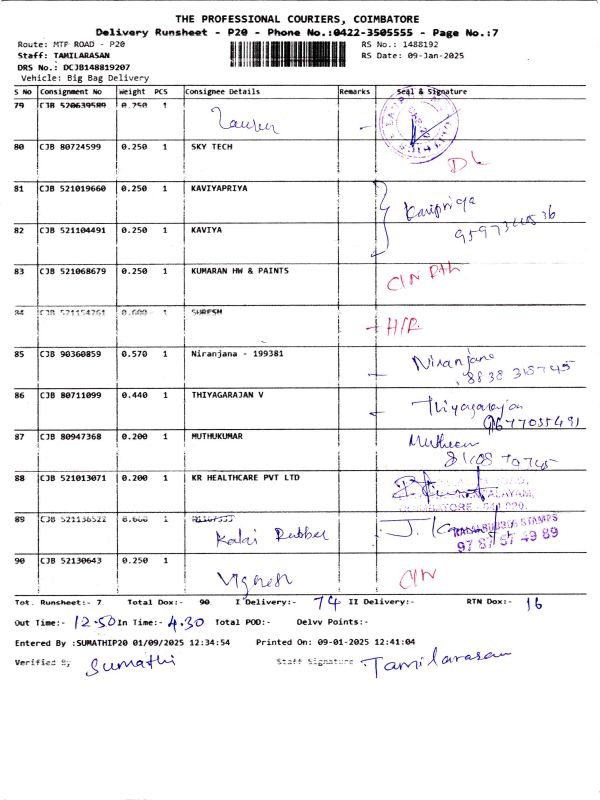 THE PROFESSIONAL COURIERS, COIMBATORE
Delivery Runsheet - P20 - Phone No.:0422-3505555 - Page No.:7
Route: MTP ROAD - P20 RS No.: 1488192
Staff: TAMILARASAN RS Date: 09-Jan-2025
DRS No.: DCJB148819207
Vehicle: Big Bag Delivery
S No Consignment No Weight PCS Consignee Details Remarks Seal & Signature
79 CJB 520639589 0.250 1
80 CJB 80724599 0.250 1 SKY TECH DL
81 CJB 521019660 0.250 1 KAVIYAPRIYA Kavipriya
82 CJB 521104491 0.250 1 KAVIYA
83 CJB 521068679 0.250 1 KUMARAN HW & PAINTS
84 CJB 521154761 0.600 1 SURESH
85 CJB 90360859 0.570 1 Niranjana - 199381 Niranjana
8838 318745
86 CJB 80711099 0.440 1 THIYAGARAJAN V Thiyagarajan
9677035491
87 CJB 80947368 0.200 1 MUTHUKUMAR
88 CJB 521013071 0.200 1 KR HEALTHCARE PVT LTD
89 CJB 521136522 0.600 1 Kalai Rubber STAMPS
97 87 87 49 89
90 CJB 52130643 0.250 1 Vignesh
Tot. Runsheet:- 7 Total Dox:- 90 I Delivery:- 74 II Delivery:- RTN Dox:- 16
Out Time:- 12.50 In Time:- 4.30 Total POD:- Delvy Points:-
Entered By :SUMATHIP20 01/09/2025 12:34:54 Printed On: 09-01-2025 12:41:04
Verified By Sumathi Staff Signature Tamilarasan